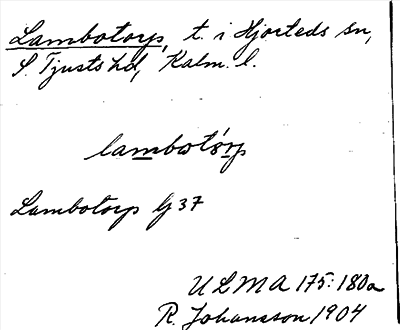 Lambotorp, t. i Hjorteds sn,
S. Tjusts hd, Kalm. l.
lambotórp
Lambotorp Gj 37
ULMA 175:180a
R. Johansson 1904